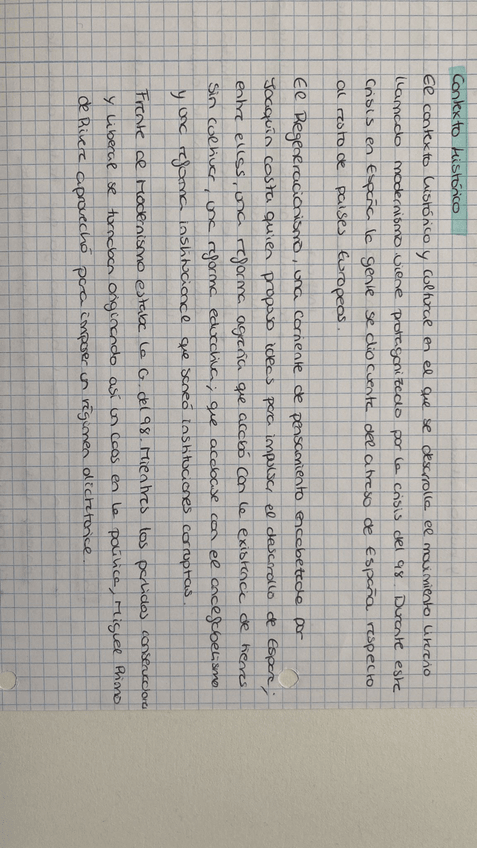 Contexto histórico
El contexto histórico y cultural en el que se desarrolla el movimiento literario
llamado modernismo viene protagonizado por la crisis del 98. Durante esta
crisis en España la gente se dio cuenta del atraso de España respecto
al resto de países europeos.
El Regeneracionismo, una corriente de pensamiento encabezada por
Joaquín Costa quien propuso ideas para impulsar el desarrollo de España;
entre ellas, una reforma agraria que acabó con la existencia de tierras
sin cultivar, una reforma educativa; que acabase con el analfabetismo
y una reforma institucional que saneó instituciones corruptas.
Frente al Modernismo estaba la G. del 98. Mientras los partidos conservadora
y liberal se turnaban originando así un caos en la política, Miguel Primo
de Rivera aprovechó para imponer un régimen dictatorial.